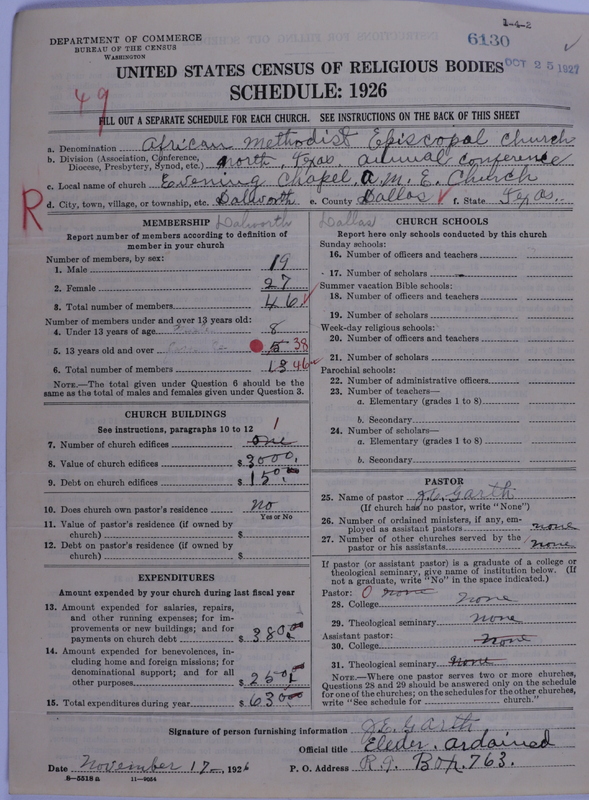 1-4-2
DEPARTMENT OF COMMERCE
BUREAU OF THE CENSUS
WASHINGTON
6130
OCT 25 1927
UNITED STATES CENSUS OF RELIGIOUS BODIES
SCHEDULE: 1926
49
FILL OUT A SEPARATE SCHEDULE FOR EACH CHURCH. SEE INSTRUCTIONS ON THE BACK OF THIS SHEET
a. Denomination African Methodist Episcopal Church
b. Division (Association, Conference, Diocese, Presbytery, Synod, etc.) North, Texas, annual conference
c. Local name of church Evening Chapel, A.M.E. Church
R
d. City, town, village, or township, etc. Dallworth e. County Dallas f. State Texas.
Dalworth Dallas
MEMBERSHIP
Report number of members according to definition of
member in your church
Number of members, by sex:
1. Male 19
2. Female 27
3. Total number of members 46
Number of members under and over 13 years old:
4. Under 13 years of age 8
5. 13 years old and over 5 38
6. Total number of members 13 46
NOTE.—The total given under Question 6 should be
same as the total of males and females given under Question 3.
CHURCH BUILDINGS
See instructions, paragraphs 10 to 12
7. Number of church edifices one 1
8. Value of church edifices $ 3000.
9. Debt on church edifices $ 150.00
10. Does church own pastor's residence No
Yes or No
11. Value of pastor's residence (if owned by
church) $
12. Debt on pastor's residence (if owned by
church) $
EXPENDITURES
Amount expended by your church during last fiscal year
13. Amount expended for salaries, repairs,
and other running expenses; for im-
provements or new buildings; and for
payments on church debt $ 380.
14. Amount expended for benevolences, in-
cluding home and foreign missions; for
denominational support; and for all
other purposes $ 250.
15. Total expenditures during year $ 630.
CHURCH SCHOOLS
Report here only schools conducted by this church
Sunday schools:
16. Number of officers and teachers
17. Number of scholars
Summer vacation Bible schools:
18. Number of officers and teachers
19. Number of scholars
Week-day religious schools:
20. Number of officers and teachers
21. Number of scholars
Parochial schools:
22. Number of administrative officers
23. Number of teachers—
a. Elementary (grades 1 to 8)
b. Secondary
24. Number of scholars—
a. Elementary (grades 1 to 8)
b. Secondary
PASTOR
25. Name of pastor J.E. Garth
(If church has no pastor, write "None")
26. Number of ordained ministers, if any, em-
ployed as assistant pastors none
27. Number of other churches served by the
pastor or his assistants none
If pastor (or assistant pastor) is a graduate of a college or
theological seminary, give name of institution below. (If
not a graduate, write "No" in the space indicated.)
Pastor: 0 none
28. College none
29. Theological seminary none
Assistant pastor:
30. College none
31. Theological seminary none
NOTE.—Where one pastor serves two or more churches,
Questions 28 and 29 should be answered only on the schedule
for one of the churches; on the schedules for the other churches,
write "See schedule for church."
Signature of person furnishing information J.E. Garth
Official title Eleder. ardained
Date November 17—, 1926 P. O. Address R.9. Box. 763.
8—5518 a 11—9054